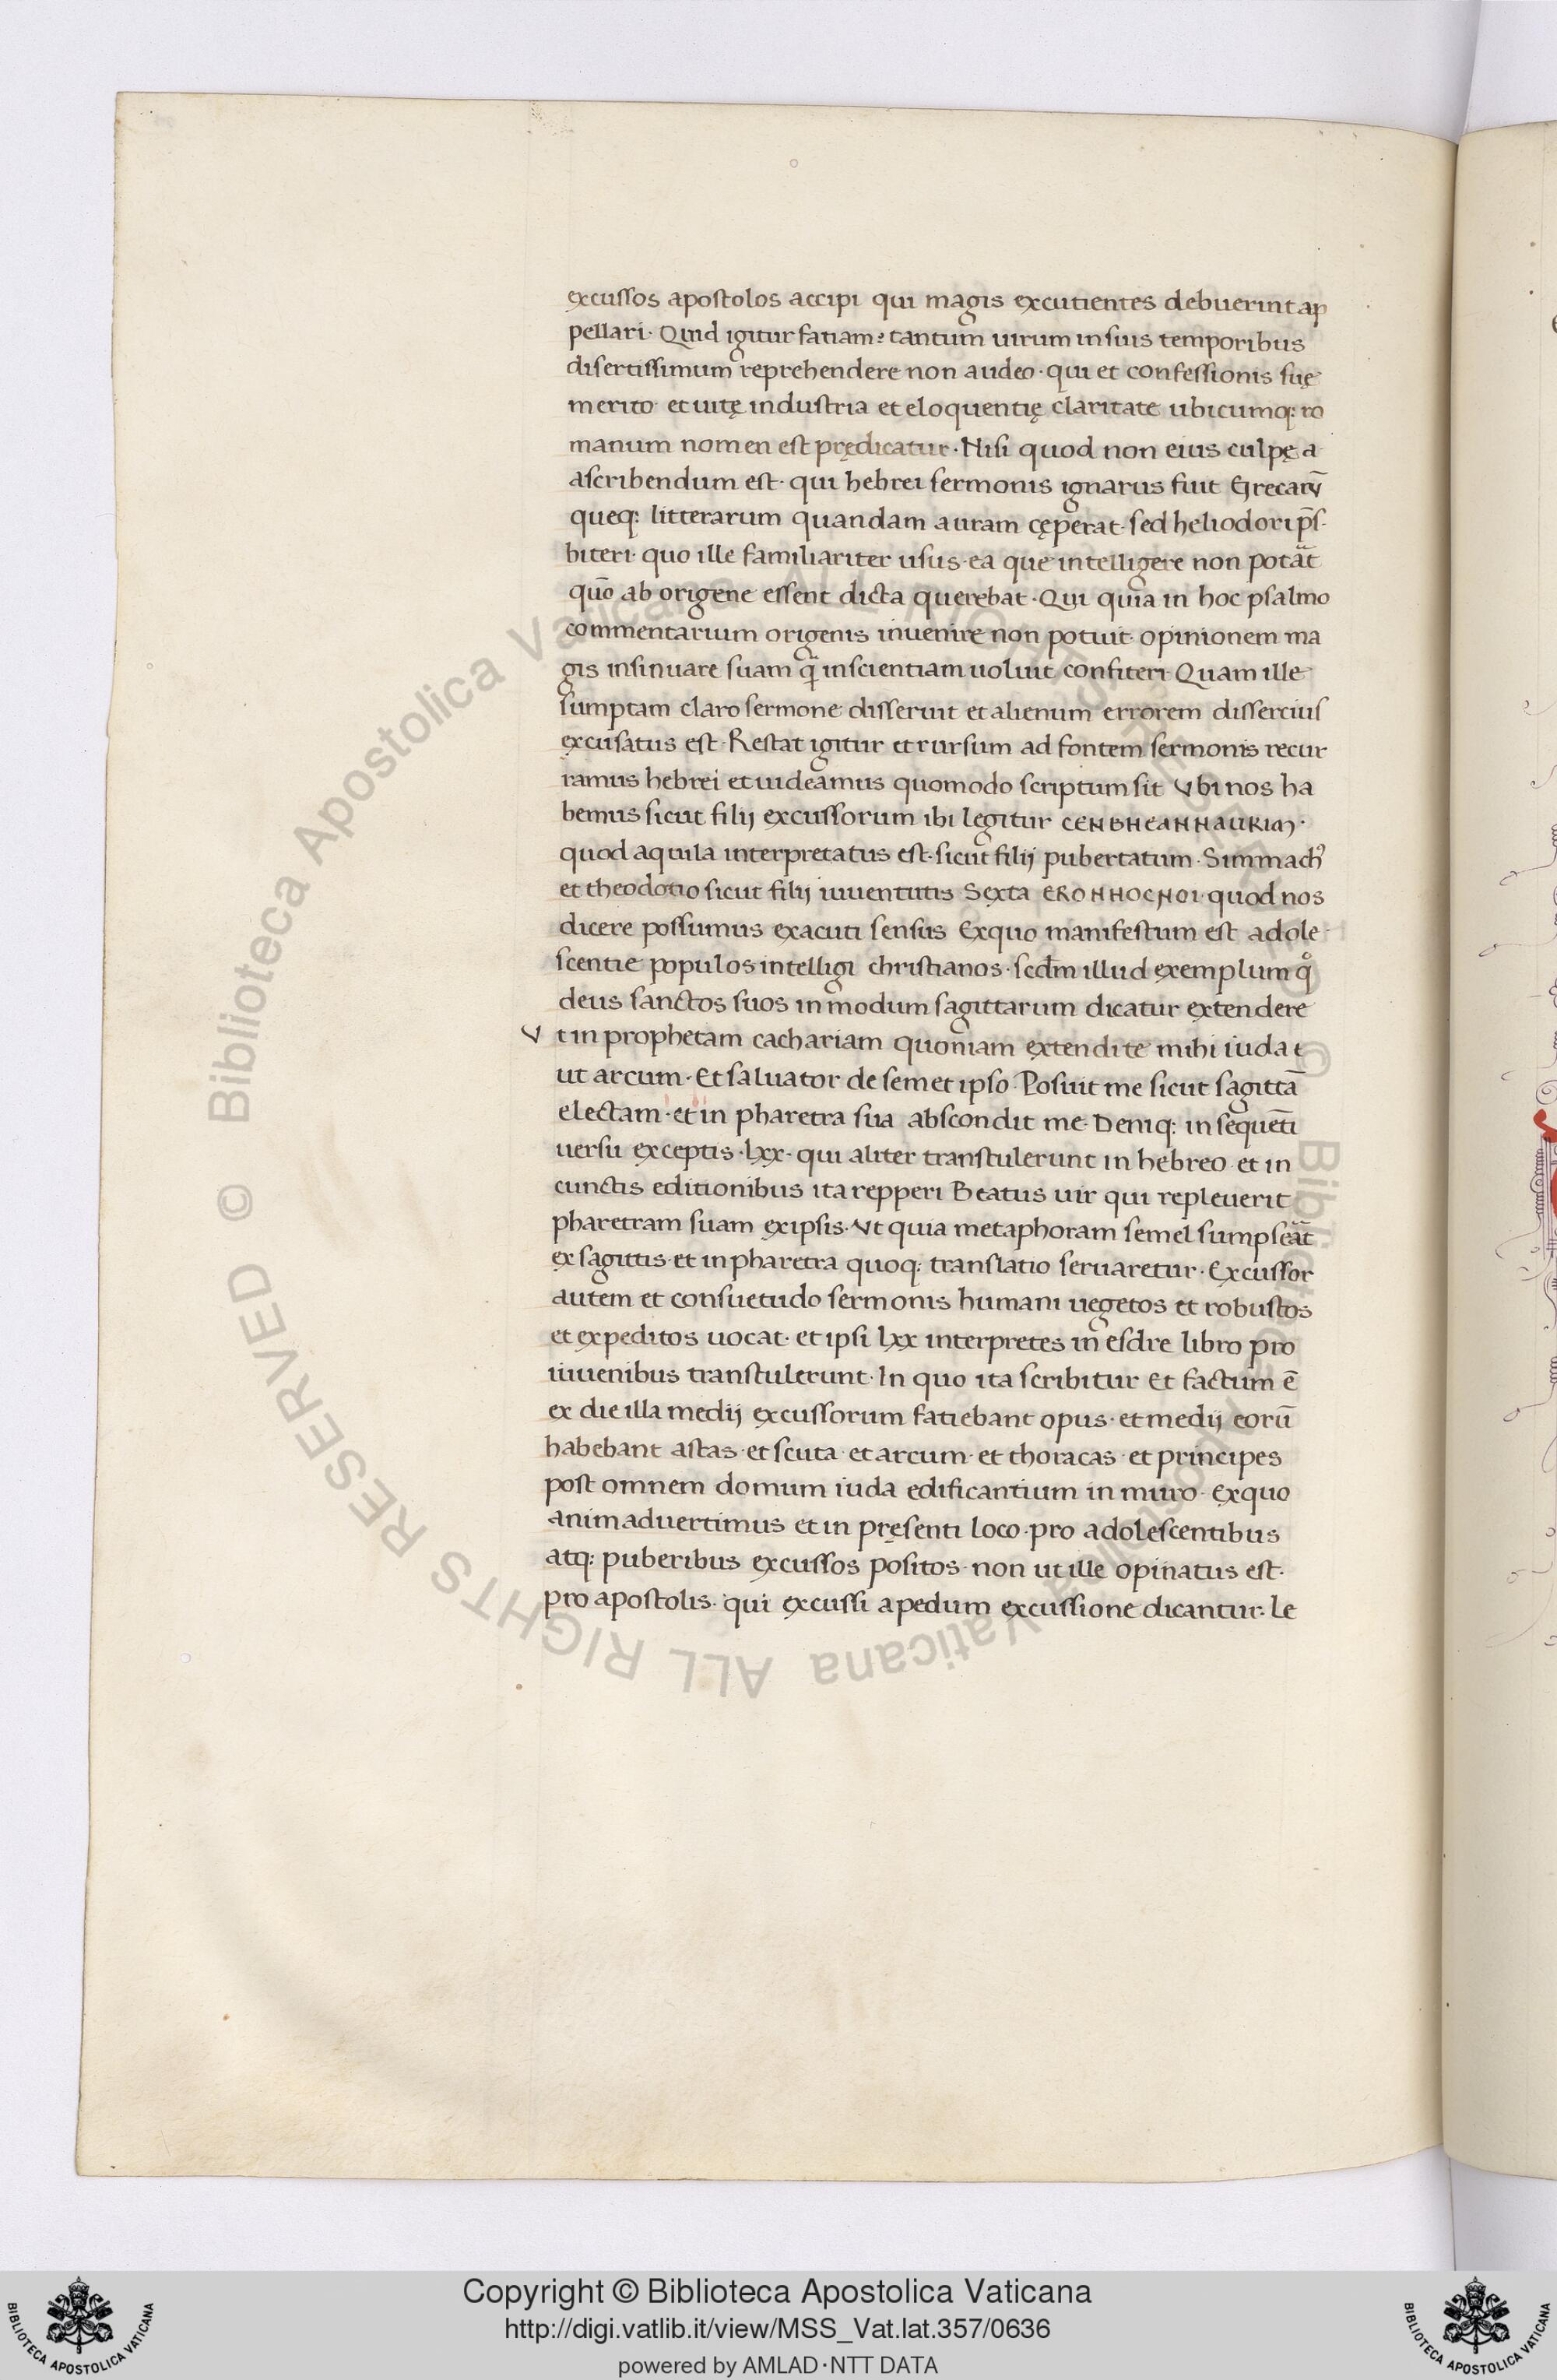 excussos apostolos accipi qui magis excutientes debuerint ap
pellari· Quid igitur fatiam? tantum uirum in suis temporibus
disertissimum reprehendere non audeo· qui et confessionis suę
merito· et uitę industria et eloquentię claritate ubicumq: ro
manum nomen est prędicatur· Nisi quod non eius culpę a
ascribendum est· qui hebrei sermonis ignarus fuit Grecarū
queq: litterarum quandam auram cęperat· sed heliodori p̄s·
biteri· quo ille familiariter usus· ea que intelligere non potãt
quō ab origene essent dicta querebat· Qui quia in hoc psalmo
commentarium origenis inuenire non potuit· opinionem ma
gis insinuare suam q̃ inscientiam uoluit confiteri· Quam ille
sumptam claro sermone disseruit et alienum errorem dissercius
excusatus est· Restat igitur et rursum ad fontem sermonis recur
ramus hebrei et uideamus quomodo scriptum sit Vbi nos ha
bemus sicut filij excussorum ibi legitur CENBHEANNAURIM·
quod aquila interpretatus est· sicut filij pubertatum· Simmach᾽
et theodotio sicut filij iuuentutis Sexta ERONHOCHOI· quod nos
dicere possumus exacuti sensus Exquo manifestum est adole
scentie populos intelligi christianos· scdm illud exemplum qͦ
deus sanctos suos in modum sagittarum dicatur extendere
V t in prophetam cachariam quoniam extendite mihi iuda e
ut arcum· Et saluator de semet ipso· Posuit me sicut sagittā
electam· et in pharetra sua abscondit me· Deniq: in sequēti
uersu exceptis· lxx· qui aliter transtulerunt in hebreo· et in
cunctis editionibus ita repperi Beatus uir qui repleuerit
pharetram suam exipsis· Vt quia metaphoram semel sumpseãt
ex sagittis· et in pharetra quoq: translatio seruaretur· Excussor
autem et consuetudo sermonis humani uegetos et robustos
et expeditos uocat· et ipsi lxx interpretes in esdre libro pro
iuuenibus transtulerunt· In quo ita scribitur Et factum ē
ex die illa medij excussorum fatiebant opus· et medij eorū
habebant astas· et scuta· et arcum· et thoracas· et principes
post omnem domum iuda edificantium in muro· Exquo
animaduertimus et in pręsenti loco· pro adolescentibus
atq: puberibus excussos positos· non ut ille opinatus est·
pro apostolis· qui excussi apedum excussione dicantur: Le
© Biblioteca Apostolica Vaticana ALL RIGHTS RESERVED
© Biblioteca Apostolica Vaticana ALL RIGHTS RESERVED
Copyright © Biblioteca Apostolica Vaticana
http://digi.vatlib.it/view/MSS_Vat.lat.357/0636
powered by AMLAD·NTT DATA
BIBLIOTECA APOSTOLICA VATICANA
BIBLIOTECA APOSTOLICA VATICANA